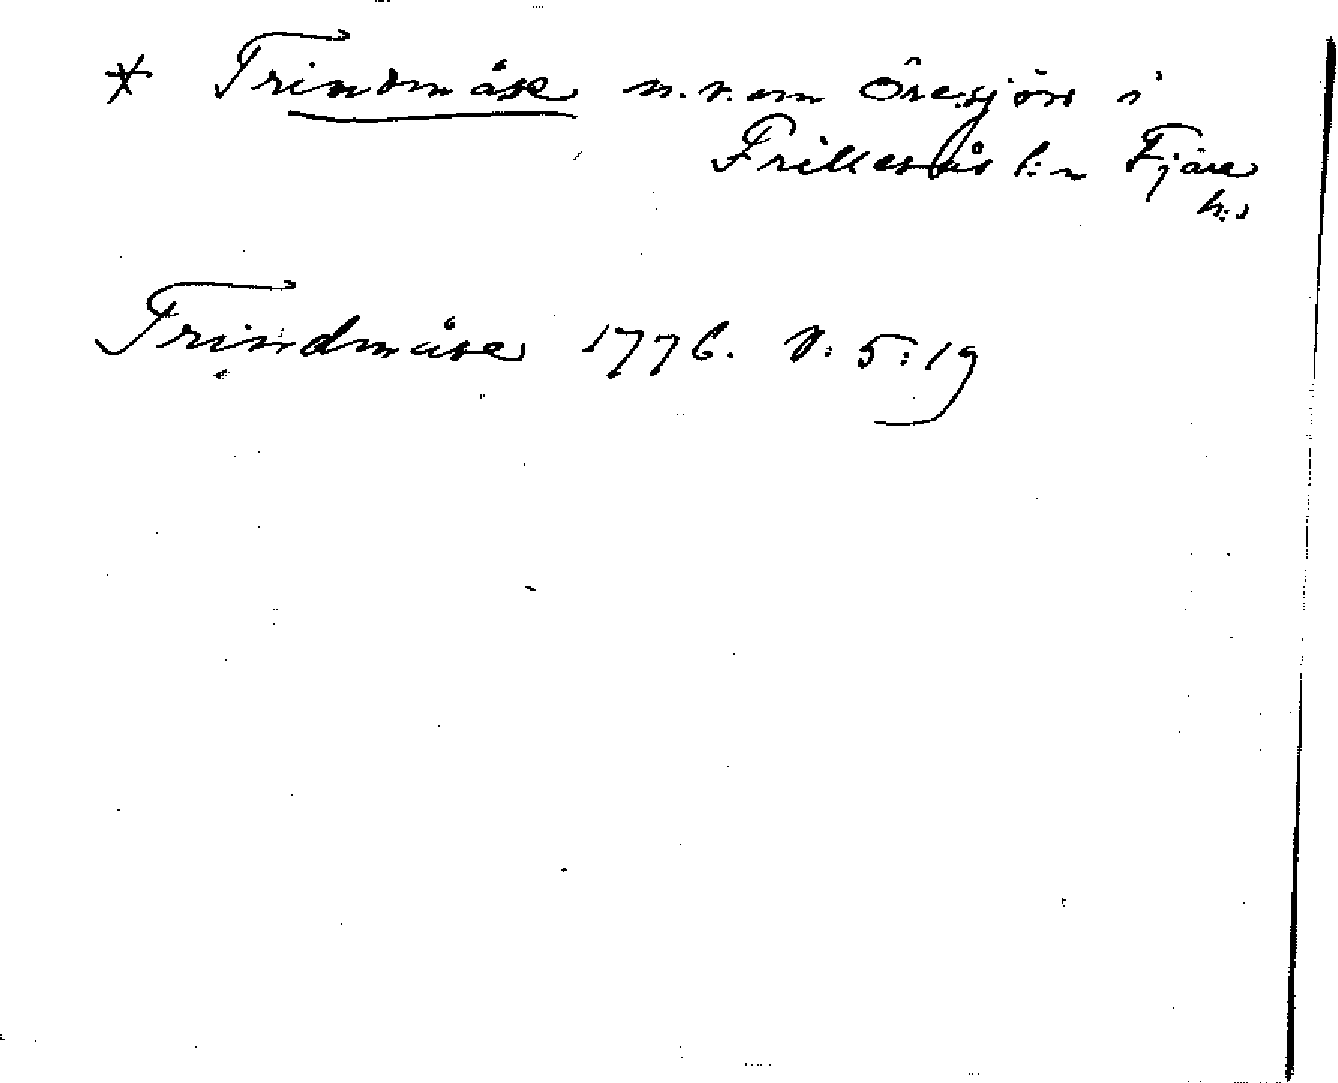 * Trindmåse n.v.om Öresjön i
Frillesås l:n Fjäre
h:d
Trindmåse 1776. V: 5: 19